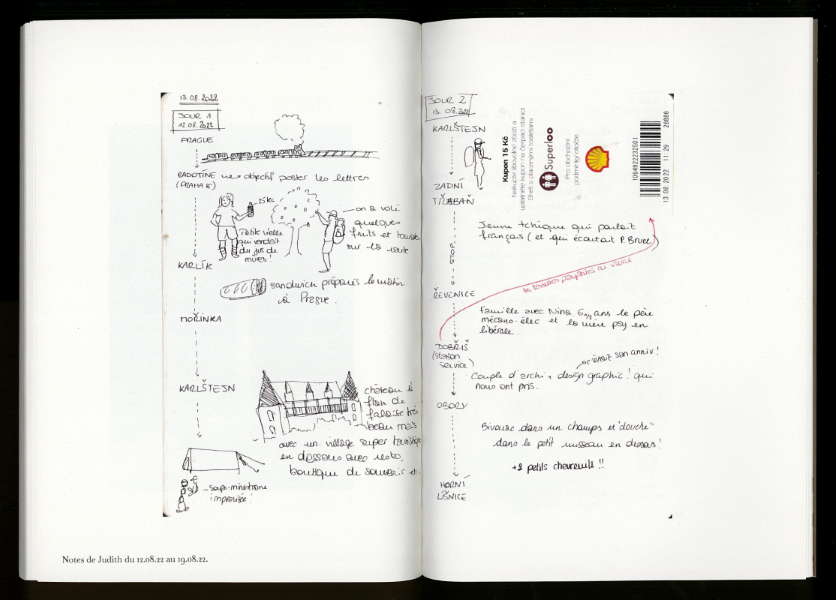 13.08.2022
JOUR 1
12.08.2022
PRAGUE
RADOTINE objectif poster les lettres
(PRAHA 16)
15Kč
Petite vieille
qui vendait
du jus de
mures!
on a volé
quelques
fruits et
sur la route
KARLÍK
sandwich préparés le matin
à Prague.
MOŘINKA
KARLŠTEJN
château à
flan de
falaise très
beau mais
avec un village super touristique
en dessous avec resto,
boutique de souvenir et
soupe-minestrone
improvisée!
Notes de Judith du 12.08.22 au 19.08.22.
JOUR 2
13.08.2022
KARLŠTEJN
ZADNÍ
TŘEBAŇ
STOP
Kupon 15 Kč
Nakupte libovolné zboží a
uplatněte kupon na čerpací stanici
Shell s placenými toaletami
Superloo
Pro obchodní
podmínky otočte
1064922232501
13 08 2022 11 29 28806
Jeune tchèque qui parlait
français (et qui écoutait P. Bruel)
les toilettes payantes
ŘEVENICE
Famille avec Nina 6 1/2 ans le père
mécano-élec et la mère psy en
libérale
DOBŘÍŠ
(station
service)
c'était son anniv!
Couple d'archi + design graphic! qui
nous ont pris.
OBORY
Bivouac dans un champs et "douche"
dans le petit ruisseau en dessous!
+2 petits chevreuils!!
HORNÍ
LÍŠNICE